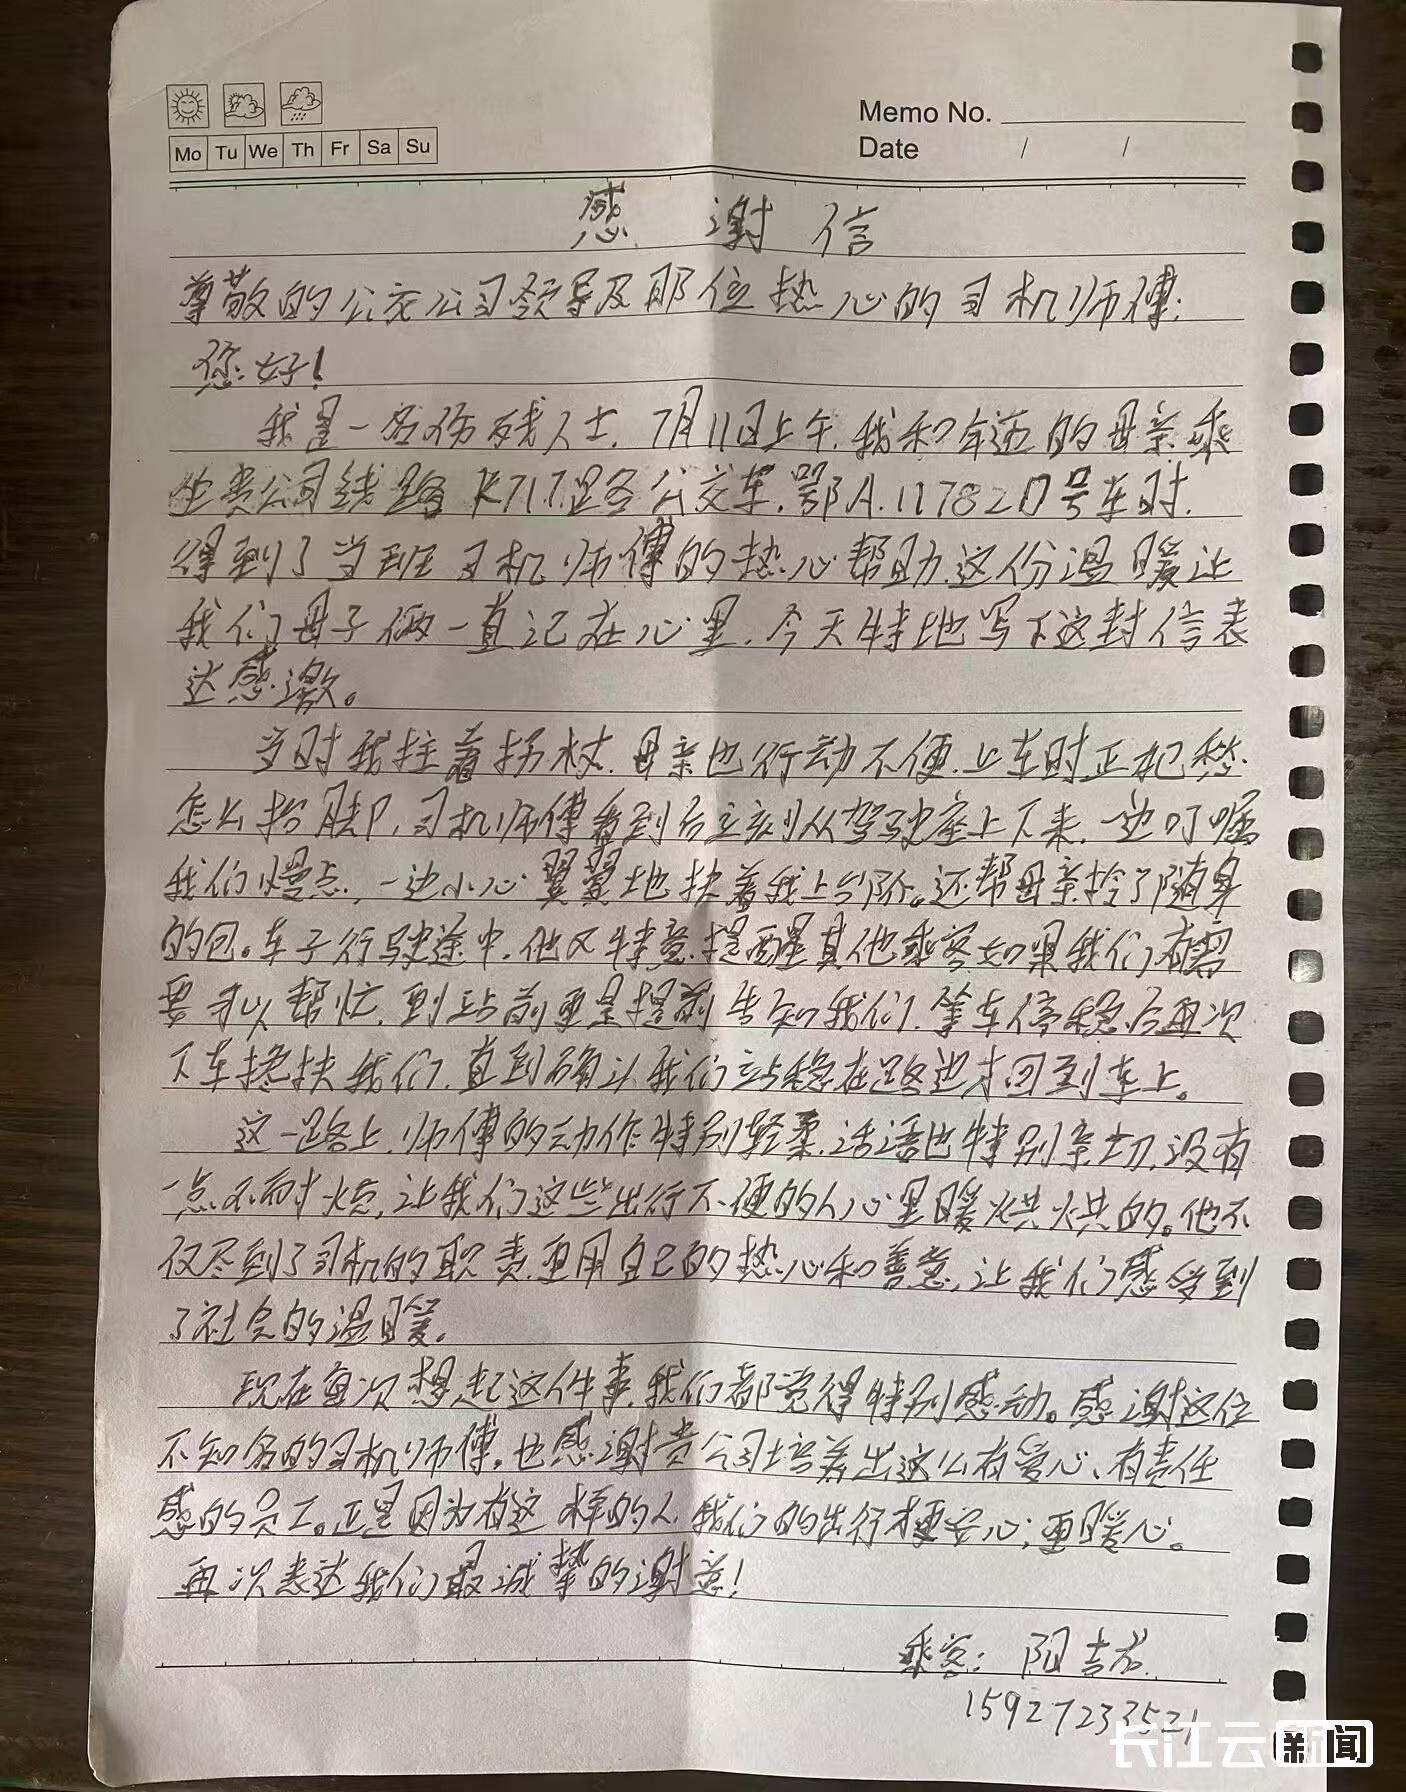 Memo No.
Mo Tu We Th Fr Sa Su
Date / /
感谢信
尊敬的公交公司领导及那位热心的司机师傅:
您好!
我是一名伤残人士,7月11日上午,我和年迈的母亲乘
坐贵公司线路K717路公交车,鄂A.117820号车时,
得到了当班司机师傅的热心帮助,这份温暖让
我们母子俩一直记在心里,今天特地写下这封信表
达感激。
当时我拄着拐杖,母亲也行动不便,上车时正犯愁
怎么抬脚,司机师傅看到后立刻从驾驶座上下来,一边叮嘱
我们慢点,一边小心翼翼地扶着我上台阶。还帮母亲拎了随身
的包。车子行驶途中,他又特意提醒其他乘客如果我们有需
要可以帮忙,到站前更是提前告知我们,等车停稳后再次
下车搀扶我们,直到确认我们站稳在路边才回到车上。
这一路上,师傅的动作特别轻柔,话语也特别亲切,没有
一点不耐烦,让我们这些出行不便的人心里暖烘烘的。他不
仅尽到了司机的职责,更用自己的热心和善意,让我们感受到
了社会的温暖。
现在每次想起这件事,我们都觉得特别感动。感谢这位
不知名的司机师傅,也感谢贵公司培养出这么有爱心、有责任
感的员工。正是因为有这样的人,我们的出行才更安心,更暖心。
再次表达我们最诚挚的谢意!
乘客:阳吉
15927233521
长江云新闻